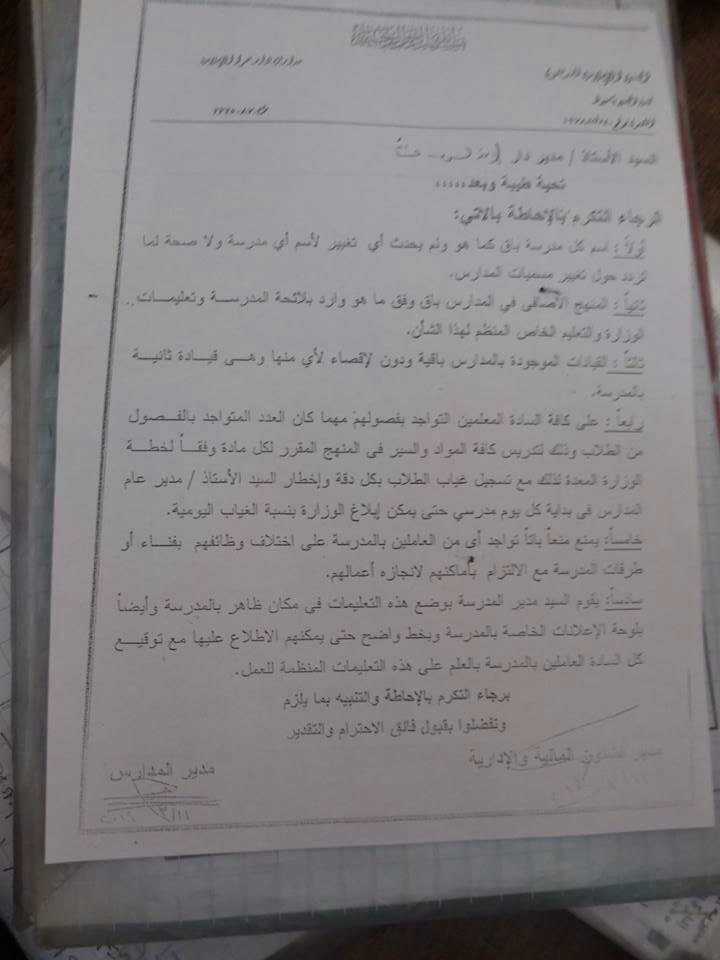 السيد الأستاذ / مدير دار
تحية طيبة وبعد،،،،،
الرجاء التكرم بالإحاطة بالآتي:
أولاً : اسم كل مدرسة باق كما هو ولم يحدث أي تغيير لأسم أي مدرسة ولا صحة لما
تردد حول تغيير مسميات المدارس.
ثانياً : المنهج الأضافى في المدارس باق وفق ما هو وارد بلائحة المدرسة وتعليمات
الوزارة والتعليم الخاص المنظم لهذا الشأن.
ثالثاً : القيادات الموجودة بالمدارس باقية ودون لإقصاء لأي منها وهى قيادة ثانية
بالمدرسة.
رابعاً : على كافة السادة المعلمين التواجد بفصولهم مهما كان العدد المتواجد بالفصول
من الطلاب وذلك لتدريس كافة المواد والسير فى المنهج المقرر لكل مادة وفقاً لخطة
الوزارة المعدة لذلك مع تسجيل غياب الطلاب بكل دقة وإخطار السيد الأستاذ / مدير عام
المدارس فى بداية كل يوم مدرسي حتى يمكن إبلاغ الوزارة بنسبة الغياب اليومية.
خامساً: يمنع منعاً باتاً تواجد أى من العاملين بالمدرسة على اختلاف وظائفهم بفناء أو
طرقات المدرسة مع الالتزام بأماكنهم لانجازه أعمالهم.
سادساً: يقوم السيد مدير المدرسة بوضع هذه التعليمات فى مكان ظاهر بالمدرسة وأيضاً
بلوحة الإعلانات الخاصة بالمدرسة وبخط واضح حتى يمكنهم الاطلاع عليها مع توقيع
كل السادة العاملين بالمدرسة بالعلم على هذه التعليمات المنظمة للعمل.
برجاء التكرم بالإحاطة والتنبيه بما يلزم
وتفضلوا بقبول فائق الاحترام والتقدير
مدير الشئون المالية والإدارية
مدير المدارس